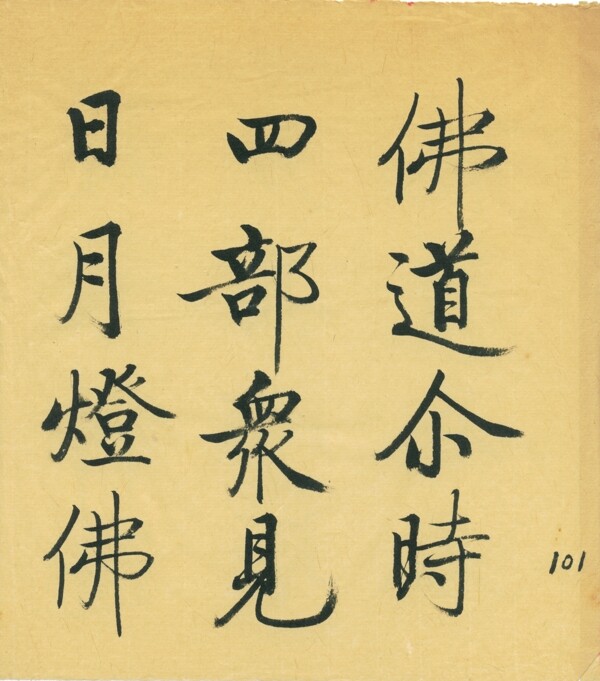 佛道尒時
四部衆見
日月燈佛
101